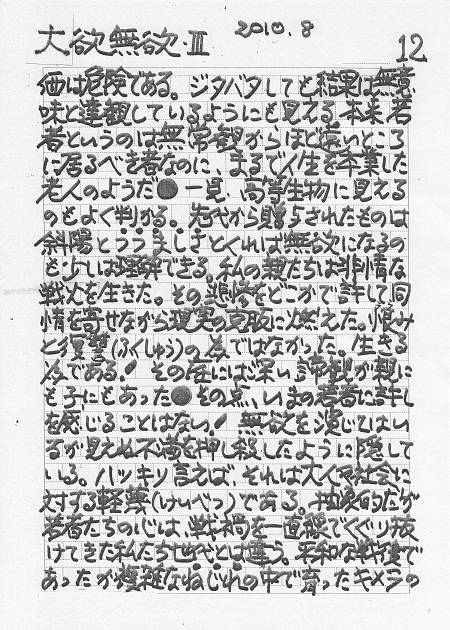 大欲無欲・Ⅲ 2010.8 12
価は危険である。ジタバタしても結果は無意
味と達観しているようにも見える。本来若
者というのは無常観からほど遠いところ
に居るべき者なのに、まるで人生を卒業した
老人のようだ●一見、高等生物に見える
のもよく判かる。先代から贈与されたものは
斜陽とうつましさとくれば無欲になるの
も少しは理解できる。私の親たちは非情な
戦火を生きた。その悲惨をどこかで許して同
情を寄せながら現実の克服に燃えた。恨み
と復讐(ふくしゅう)の為ではなかった。生きる
為である。その在には深い諦観が親に
も子にもあった●その点、いまの若者に許し
を感じることはない。無欲を演じてはい
るが見えぬ不満を押し殺したように隠して
いる。ハッキリ言えば、それは大人や社会に
対する軽蔑(けいべつ)である。抽象的だが
若者たちの心は、戦禍を一直線でくぐり抜
けてきた私たち世代とは違う。平和な戦後で
あったが複雑なねじれの中で育ったキメラの